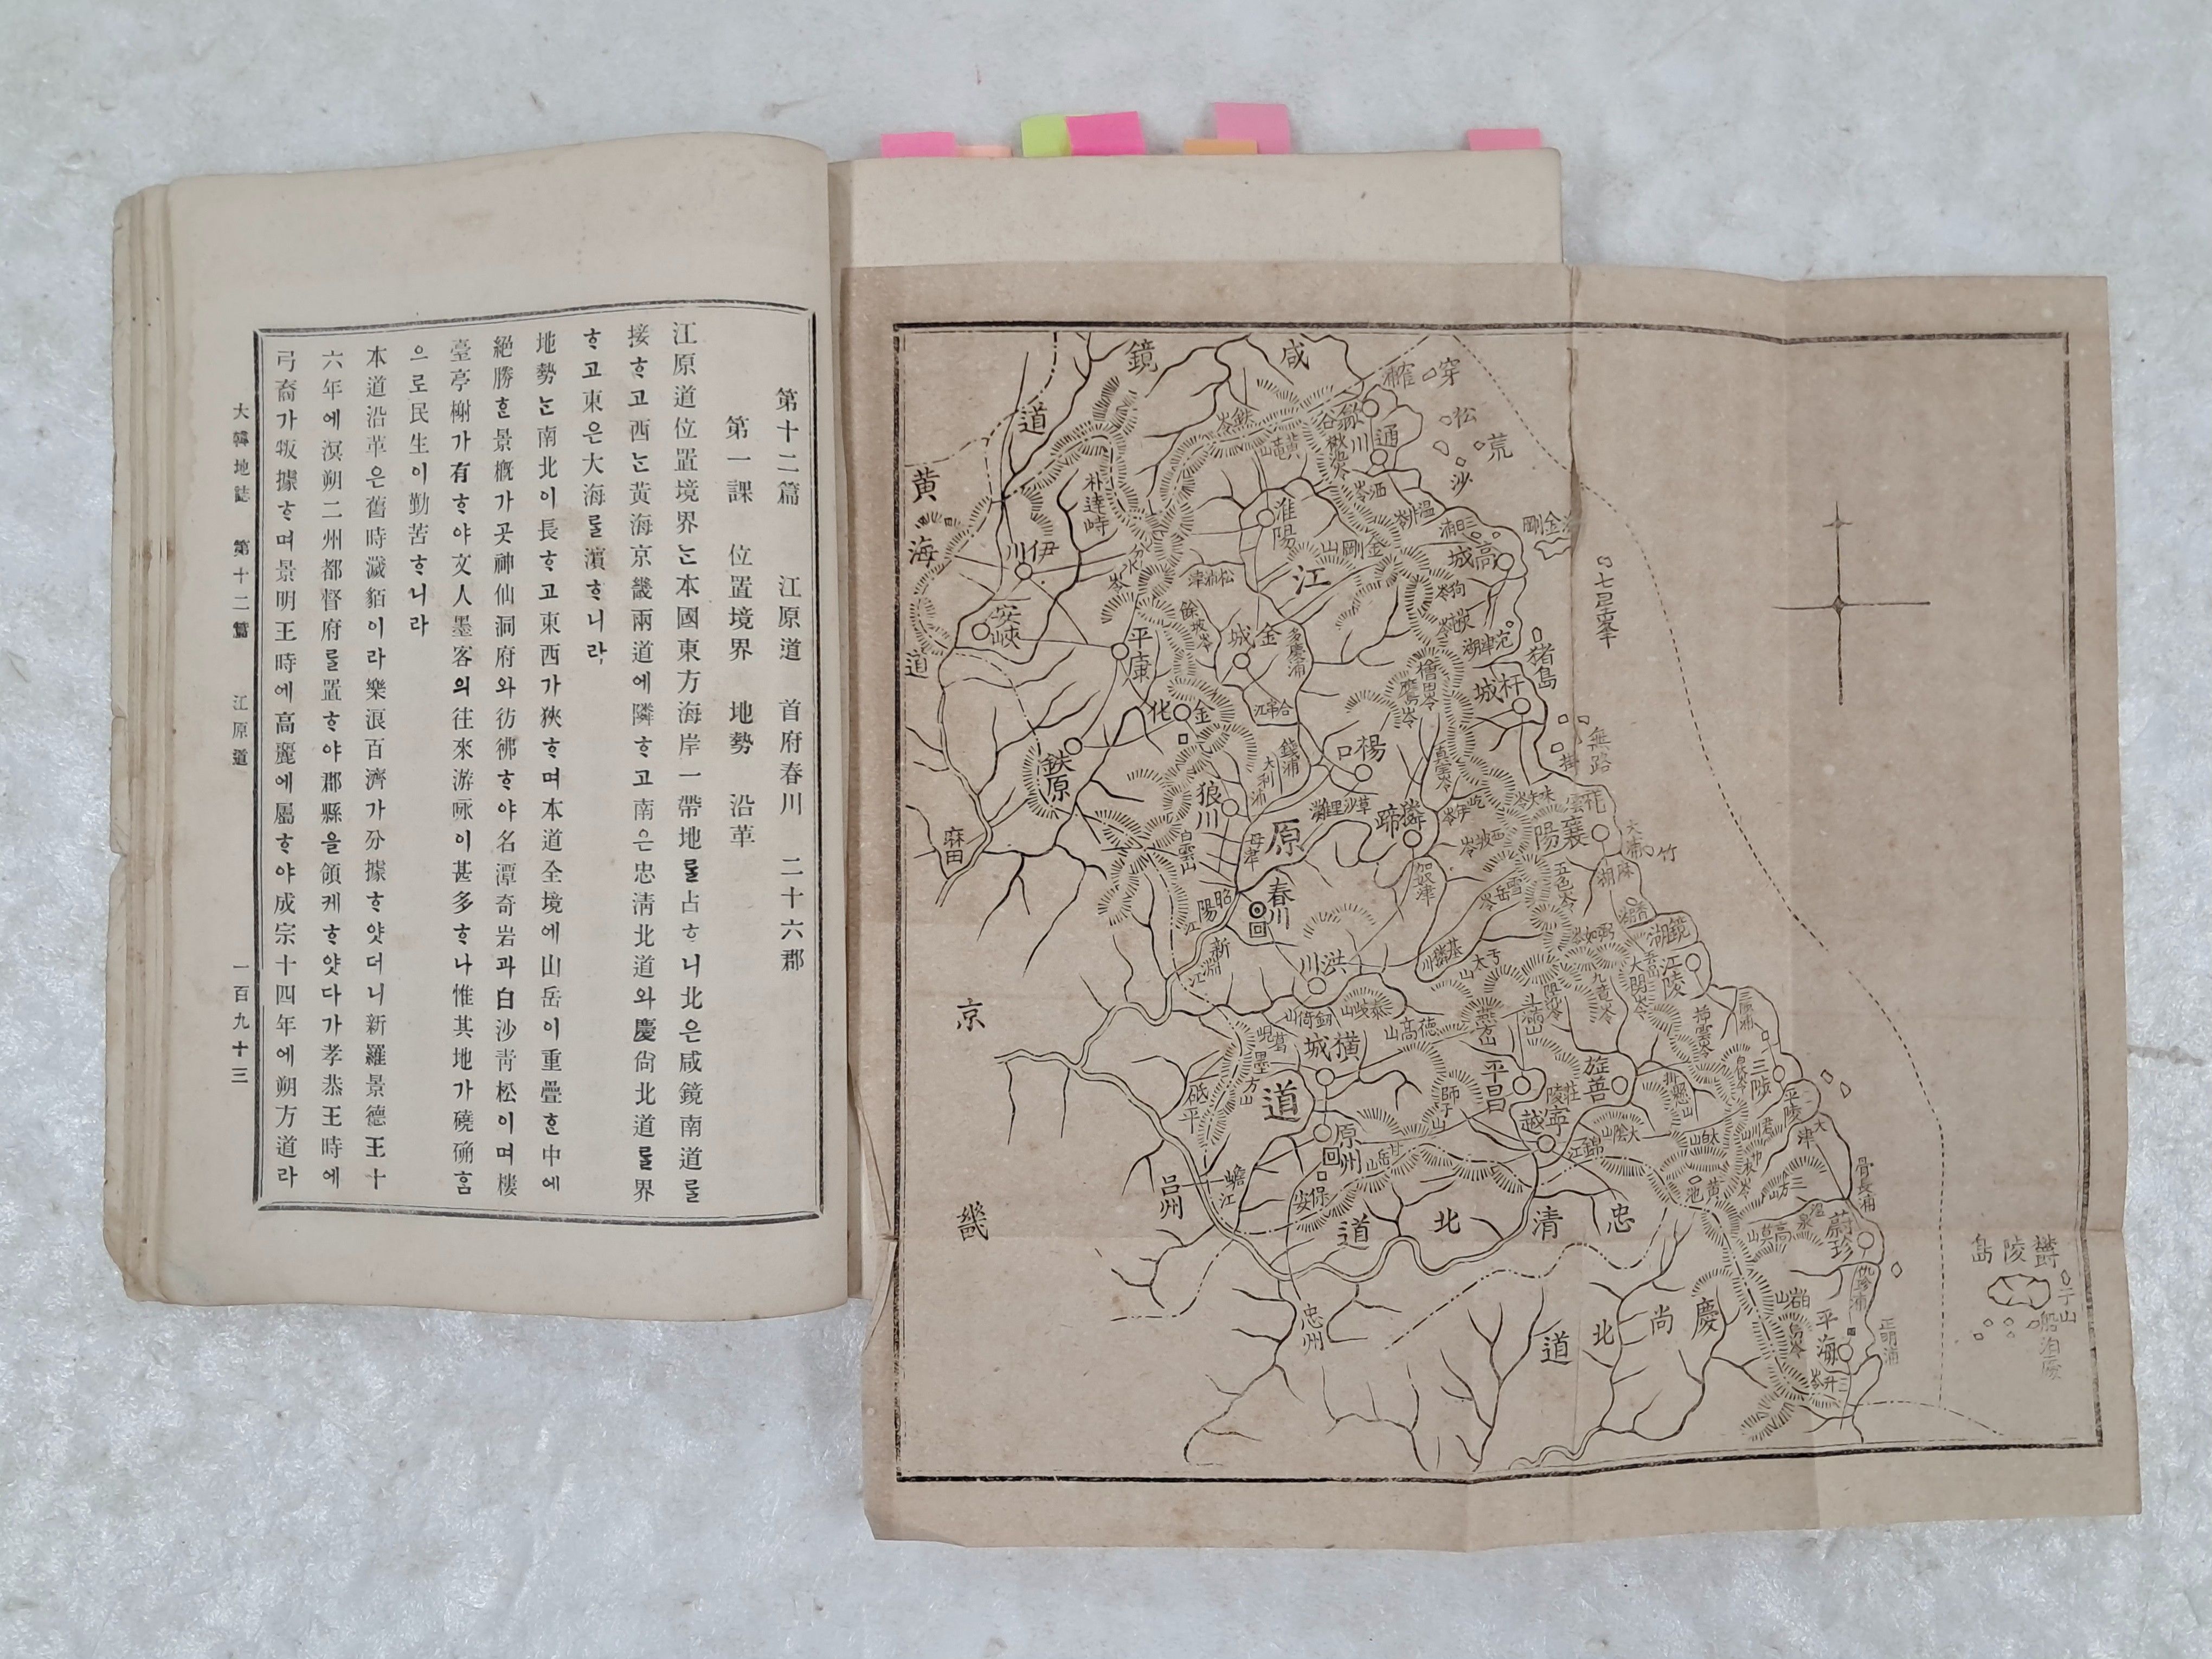 第十二篇　江原道　首府春川　二十六郡
第一課　位置境界　地勢　沿革
江原道位置境界는本國東方海岸一帶地를占ᄒᆞ니北은咸鏡南道를
接ᄒᆞ고西는黃海京畿兩道에隣ᄒᆞ고南은忠淸北道와慶尙北道를界
ᄒᆞ고東은大海를濱ᄒᆞ니라
地勢는南北이長ᄒᆞ고東西가狹ᄒᆞ며本道全境에山岳이重疊ᄒᆞᆫ中에
絕勝ᄒᆞᆫ景槪가곳神仙洞府와彷彿ᄒᆞ야名潭奇岩과白沙靑松이며樓
臺亭榭가有ᄒᆞ야文人墨客의往來游咏이甚多ᄒᆞ나惟其地가磽确ᄒᆞᆷ
으로民生이勤苦ᄒᆞ니라
本道沿革은舊時濊貊이라樂浪百濟가分據ᄒᆞ얏더니新羅景德王十
六年에溟朔二州都督府를置ᄒᆞ야郡縣을領케ᄒᆞ얏다가孝恭王時에
弓裔가叛據ᄒᆞ며景明王時에高麗에屬ᄒᆞ야成宗十四年에朔方道라
大韓地誌　第十二篇　江原道　一百九十三
咸鏡道
黃海道
京畿
江原道
忠清北道
慶尚北道
歙谷
通川
穿
松
荒
沙
鐵岑
黃龍山
楸池岑
朴達峙
淮陽
伊川
安峽
平康
金剛山
高城
三日浦
七星峯
猪島
杆城
金城
多慶浦
金化
鉄原
狼川
楊口
麟蹄
襄陽
無路
竹
大浦
草沙里灘
母津
大利浦
白雲山
昭陽江
新淵江
春川
洪川
五色岑
雪岳岑
鏡湖
江陵
大関岑
泰岐山
德高山
五太山
橫城
平昌
旌善
三陟
平陵
寧越
莊陵
錦江
師子山
砥平
原州
蟾江
呂州
保安
黃池
太白山
大陰山
骨長浦
蔚珍
高莫山
平海
正明浦
忠州
麻田
欝陵島
于山
船泊處